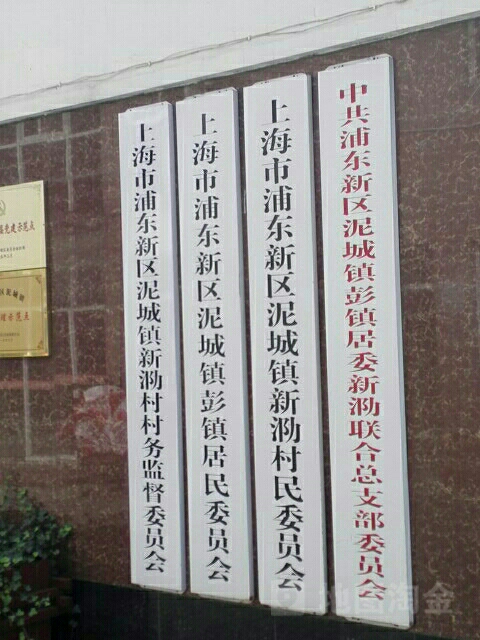 中共浦东新区泥城镇彭镇居委新泐联合总支部委员会
上海市浦东新区泥城镇新泐村民委员会
上海市浦东新区泥城镇彭镇居民委员会
上海市浦东新区泥城镇新泐村村务监督委员会
党建示范点
示范点
地图淘金